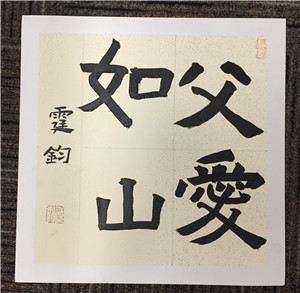 父愛
如山
霆鈞